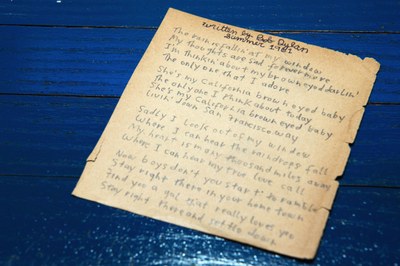 written by Bob Dylan
Summer 1961
The rain is fallin' at my window
My thoughts are sad forever more
I'm thinkin' about my brown eyed darlin'
The only one that I adore
She's my California brown eyed baby
The only one I think about today
She's my California brown eyed baby
Livin' down San Francisco way
Sadly I look out of my window
Where I can hear the raindrops fall
My heart is many thousand miles away
Where I can hear my true love call
Now boys don't you start to ramble
Stay right there in your home town
Find you a gal that really loves you
Stay right there and settle down